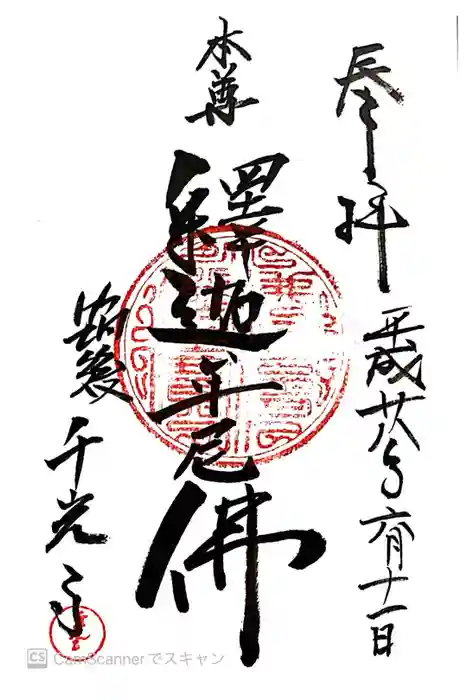 奉拝
平成廿八年六月十一日
本尊
釋迦牟尼佛
筑後
千光寺
CS CamScanner でスキャン